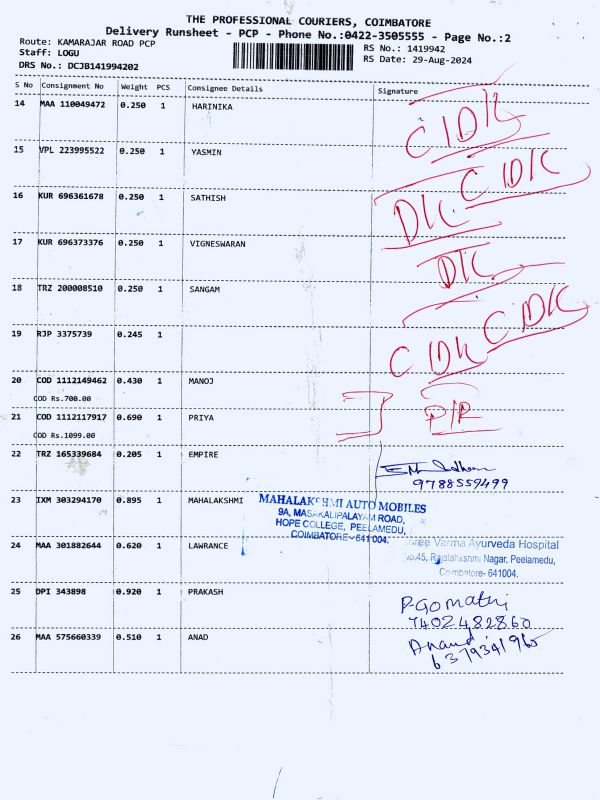 THE PROFESSIONAL COURIERS, COIMBATORE
Delivery Runsheet - PCP - Phone No.:0422-3505555 - Page No.:2
Route: KAMARAJAR ROAD PCP RS No.: 1419942
Staff: LOGU RS Date: 29-Aug-2024
DRS No.: DCJB141994202
S No Consignment No Weight PCS Consignee Details Signature
14 MAA 110049472 0.250 1 HARINIKA C/DK
15 VPL 223995522 0.250 1 YASMIN C DK
16 KUR 696361678 0.250 1 SATHISH DK.
17 KUR 696373376 0.250 1 VIGNESWARAN DK
18 TRZ 200008510 0.250 1 SANGAM C DK
19 RJP 3375739 0.245 1 C/DK
20 COD 1112149462 0.430 1 MANOJ
COD Rs.700.00
21 COD 1112117917 0.690 1 PRIYA P/R
COD Rs.1099.00
22 TRZ 165339684 0.205 1 EMPIRE
9788559499
23 IXM 303294170 0.895 1 MAHALAKSHMI
MAHALAKSHMI AUTO MOBILES
9A, MASAKALIPALAYAM ROAD,
HOPE COLLEGE, PEELAMEDU,
COIMBATORE - 641 004.
24 MAA 301882644 0.620 1 LAWRANCE
Varma Ayurveda Hospital
No.45, Rajalahxshmi Nagar, Peelamedu,
Coimbatore- 641004.
25 DPI 343898 0.920 1 PRAKASH
P-Gomathi
7402482860
26 MAA 575660339 0.510 1 ANAD
Anand
6379341965